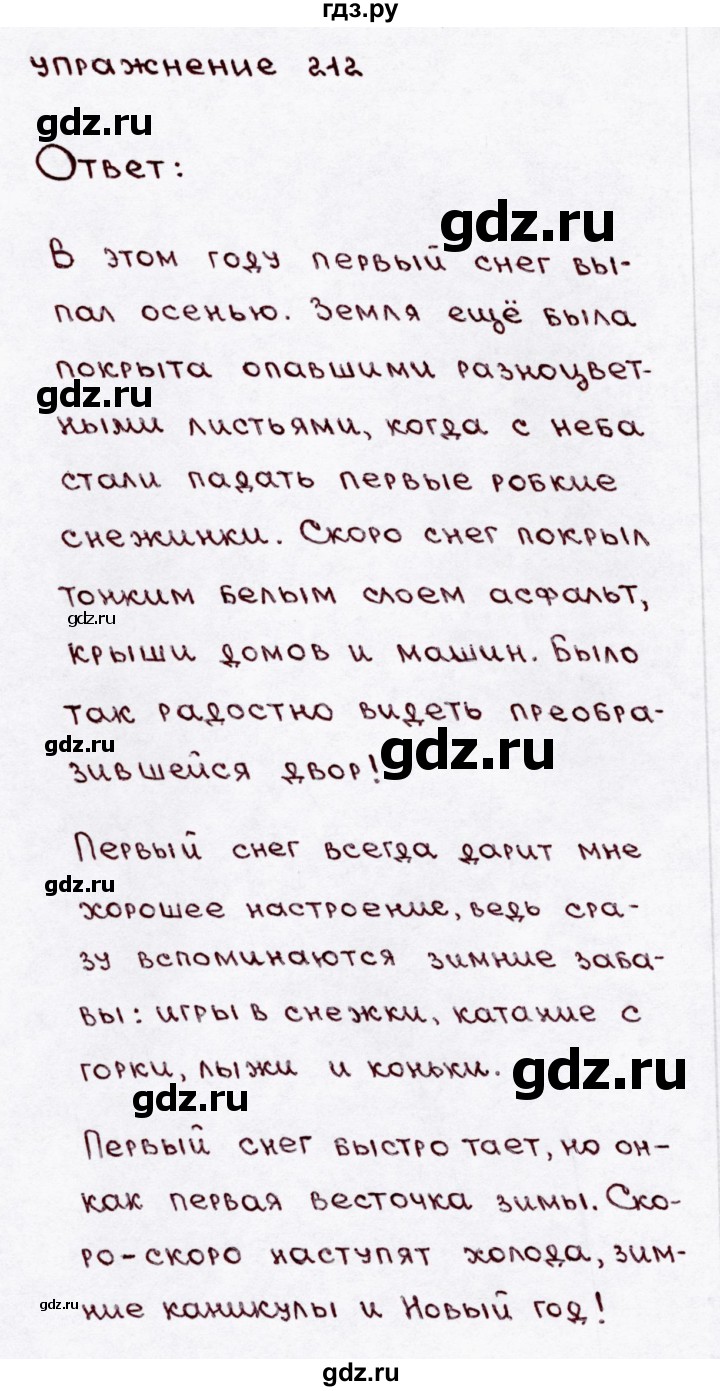 гдз.ру
упражнение 212
gdz.ru
Ответ:
gdz.ru
В этом году первый снег вы-
пал осенью. Земля ещё была
покрыта опавшими разноцвет-
gdz.ru
ными листьями, когда с неба
стали падать первые робкие
снежинки. Скоро снег покрыл
тонким белым слоем асфальт,
gdz.ru
крыши домов и машин. Было
так радостно видеть преобра-
gdz.ru
gdz.ru
зившейся двор!
Первый снег всегда дарит мне
gdz.ru
хорошее настроение, ведь сра-
зу вспоминаются зимние заба-
вы: игры в снежки, катание с
горки, лыжи и коньки.
gdz.ru
gdz.ru
Первый снег быстро тает, но он-
как первая весточка зимы. Ско-
ро-скоро наступят холода, зим-
gdz.ru
ние каникулы и Новый год!
gdz.ru